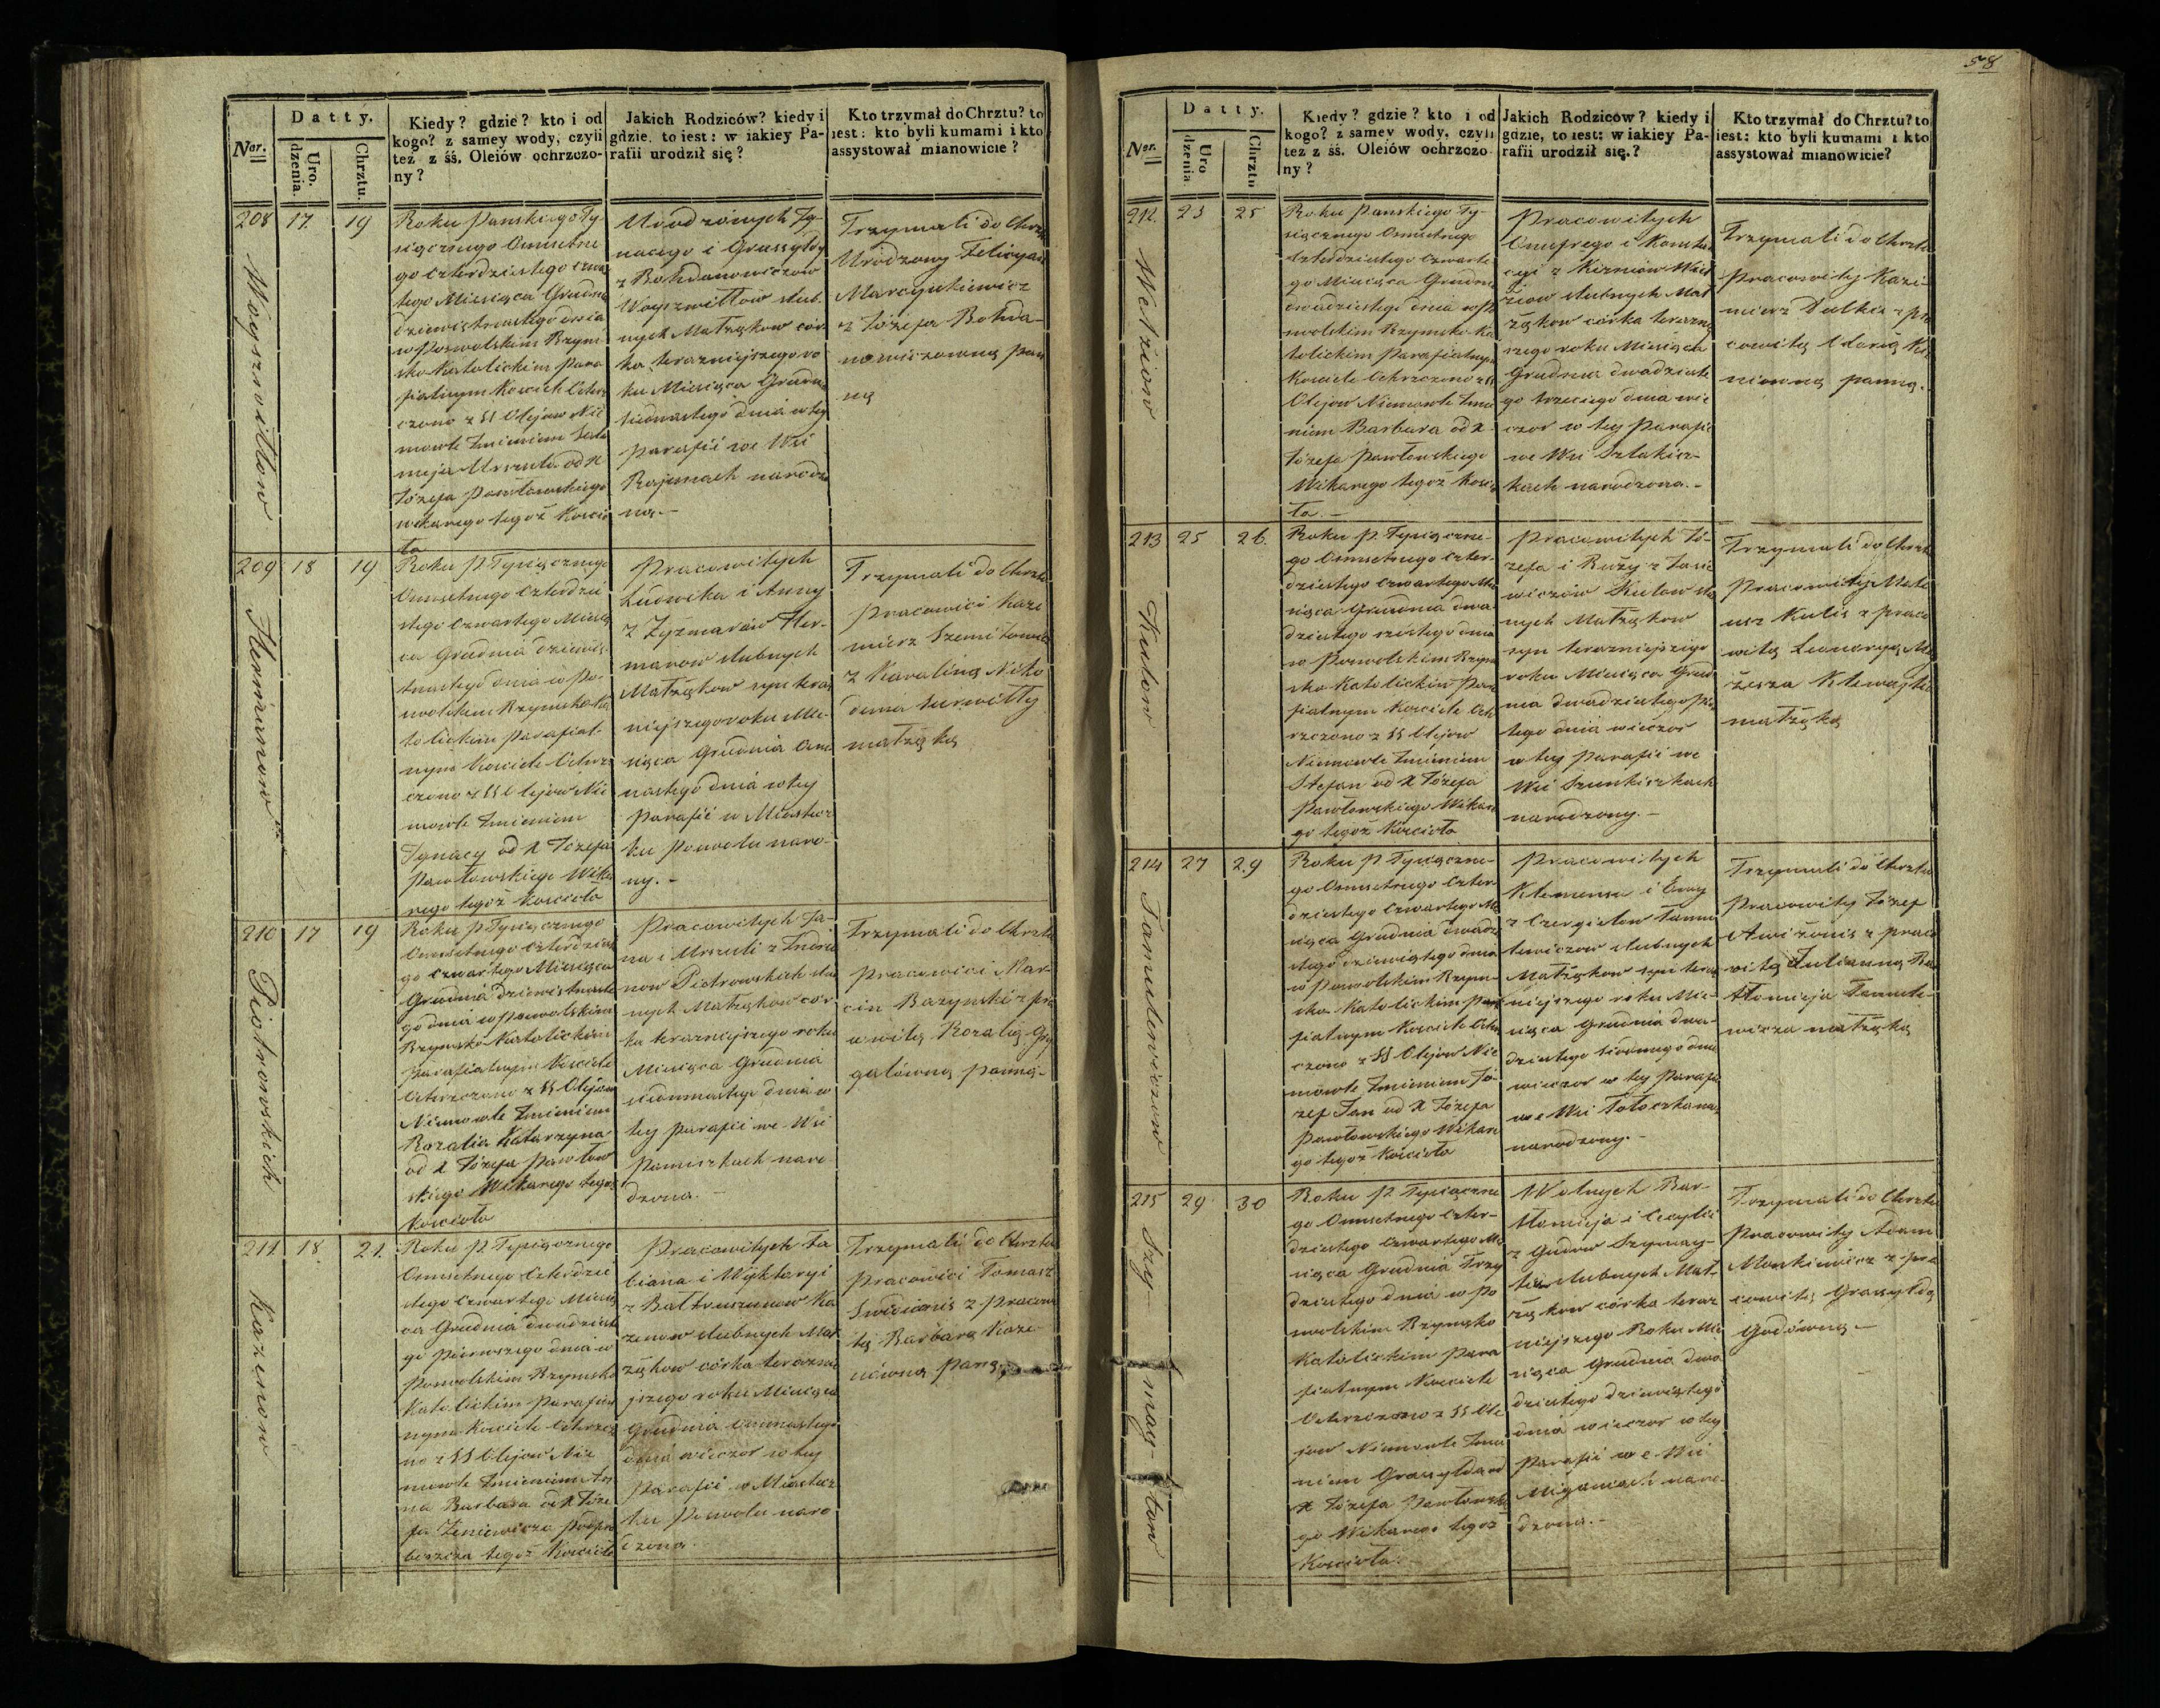 58
Datty.
Nor.
Uro.
dzenia.
Chrztu.
Kiedy? gdzie? kto i od
kogo? z samey wody, czyli
też z śś. Oleiów ochrzczo-
ny?
Jakich Rodziców? kiedy i
gdzie, to iest: w iakiey Pa-
rafii urodził się?
Kto trzymał do Chrztu? to
iest: kto byli kumami i kto
assystował mianowicie?
208
17
19
Woyszwiłłow
Roku Panskiego Ty-
siącznego Osmsetne
go czterdziestego czwar
tego Miesiąca Grudnia
dziewiętnastego dnia
w Poswolskim Rzym
sko Katolickim Para
fialnym Kosciele Ochrz
czono z SS Olejow Nie
mowle Imieniem
Urszula od X
Józefa Pawłowskiego
wikarego tegoż Koscio
ła
Urodzonych Ig-
nacego i Grassyldy
z Bohdanowiczow
Woyszwiłłow slub-
nych Małżąkow cór-
ka teraznieyszego ro
ku Miesiąca Grudnia
siedmnastego dnia w tey
parafii we Wsi
narodzo
na.-
Trzymali do Chrztu
Urodzony Felicyan
Marcynkiewicz
z Józefa Bohda-
nowiczowną pan
ną
209
18
19
Hermanow
Roku P. Tysiącznego
Osmsetnego Czterdzie
stego Czwartego Miesią
ca Grudnia dziewię-
tnastego dnia w Po-
swolskim Rzymsko Ka
tolickim parafial-
nym Kosciele Ochrz
czono z SS Olejow Nie
mowle Imieniem
Ignacy od X Józefa
Pawłowskiego Wika
rego tegoż Kosciola
Pracowitych
Ludwika i Anny
z Zyzmarów Her-
manow slubnych
Małżąkow syn teraz
niejszego roku Mie-
siąca Grudnia Osm
nastego dnia w tey
Parafii w Miastecz
ku Poswolu naro-
ny.-
Trzymali do Chrztu
Pracowici Kazi
mierz
z Karaliną Niko
dema
małżąką
210
17
19
Piotrowskich
Roku P. Tysiącznego
Osmsetnego Czterdzieste
go Czwartego Miesiąca
Grudnia dziewiętnaste
go dnia w Poswolskim
Rzymsko Katolickim
Parafialnym Kosciele
Ochrzczono z SS Olejow
Niemowle Imieniem
Rozalia Katarzyna
od X Józefa Pawłow
skiego Wikarego tegoż
Kosciola
Pracowitych Ja-
na i Urszuli z
now Piotrowskich slub
nych Małżąkow cór-
ka teraznieyszego roku
Miesiąca Grudnia
siedmnastego dnia w
tey parafii we Wsi
naro
dzona.
Trzymali do Chrztu
Pracowici Mar
cin Bazynski z pra
cowitą Rozalią
galówną panną.-
211.
18.
21.
Kazenow
Roku P. Tysiącznego
Osmsetnego Czterdzie
stego Czwartego Miesią
ca Grudnia dwudzieste
go pierwszego dnia w
Poswolskim Rzymsko
Katolickim Parafial
nym Kosciele Ochrzczo
no z SS Olejow Nie
mowle Imieniem An
na Barbara od X Józe
fa
tegoż Kosciola
Pracowitych Fa
biana i Wiktoryi
z Bałtruszunow Ka
zenow slubnych Mał
żąkow córka teraznie
jszego roku Miesiąca
Grudnia Osmnastego
dnia wieczor w tey
Parafii w Miastecz
ku Poswolu naro
dzona.
Trzymali do Chrztu
Pracowici Tomasz
z pracow
itą Barbarą Kaze
nówną
Datty.
Nor.
Uro
dzenia
Chrztu
Kiedy? gdzie? kto i od
kogo? z samey wody, czyli
też z śś. Oleiów ochrzczo
ny?
Jakich Rodziców? kiedy i
gdzie, to iest: w iakiey Pa-
rafii urodził się.?
Kto trzymał do Chrztu? to
iest: kto byli kumami i kto
assystował mianowicie?
212.
23
25
Welziow
Roku Panskiego Ty-
siącznego Osmsetnego
Czterdziestego Czwarte
go Miesiąca Grudnia
dwudziestego dnia w Po
swolskim Rzymsko Ka
tolickim Parafialnym
Kosciele Ochrzczono z SS
Olejow Niemowle Imie
niem Barbara od X
Józefa Pawłowskiego
Wikarego tegoż Koscio
ła.-
Pracowitych
Onufrego i Konstan
cyi z Kizniow Wiel
ziow slubnych Mał
żąkow córka teraznie
szego roku Miesiąca
Grudnia dwudzieste
go trzeciego dnia wie
czor w tey Parafii
we Wsi
narodzona.-
Trzymali do Chrztu
Pracowity Kazi-
mierz z pra
cowitą
panną.
213
25
26.
Kulow
Roku P. Tysiączne-
go Osmsetnego Czter-
dziestego Czwartego Mie
siąca Grudnia dwu
dziestego szóstego dnia
w Poswolskim Rzym
sko Katolickim Para
fialnym Kosciele Och
rzczono z SS Olejow
Niemowle Imieniem
Stefan od X Józefa
Pawłowskiego Wikare
go tegoż Kosciola
Pracowitych Jó-
zefa i Ruży z Jasie
wiczów Kulow slub
nych Małżąkow
syn teraznieyszego
roku Miesiąca Grud
nia dwudziestego pią
tego dnia wieczor
w tey Parafii we
Wsi
narodzony.-
Trzymali do Chrztu
Pracowity Mate
usz Kulis z praco
witą
małżąką
214
27
29
Tamulewiczow
Roku P. Tysiączne-
go Osmsetnego Czter-
dziestego Czwartego Mie
siąca Grudnia dwudz
stego dziewiątego dnia
w Poswolskim Rzym-
sko Katolickim Para
fialnym Kosciele Ochrz
czono z SS Olejow Nie
mowle Imieniem Jó-
zef Jan od X Józefa
Pawłowskiego Wikare
go tegoż Kosciola
Pracowitych
Klemensa i Ewy
z Tamu
lewiczow slubnych
Małżąkow syn teraz
niejszego roku Mie-
siąca Grudnia dwu-
dziestego siódmego dnia
wieczor w tey Parafii
we Wsi
narodzony.-
Trzymali do Chrztu
Pracowity Józef
Awiżonis z praco
witą Julianną Bar
tłomieja Tamule-
wicza małżąką
215
29
30
Szymaytow
Roku P. Tysiączne
go Osmsetnego Czter-
dziestego Czwartego Mie
siąca Grudnia Trzy
dziestego dnia w Po
swolskim Rzymsko
Katolickim Para
fialnym Kosciele
Ochrzczono z SS Ole
jow Niemowle Imie
niem Grassylda od
X Józefa Pawłowskie
go Wikarego tegoż
Kosciola.-
Wolnych Bar-
tłomieja i Cecylii
z Gudow Szymay-
tow slubnych Mał-
żąkow córka teraz
niejszego Roku Mie
siąca Grudnia dwu
dziestego dziewiątego
dnia wieczor w tey
Parafii we Wsi
naro-
dzona.-
Trzymali do Chrztu
Pracowity Adam
Monkiewicz z pra
cowitą Grassyldą
Gudówną.-